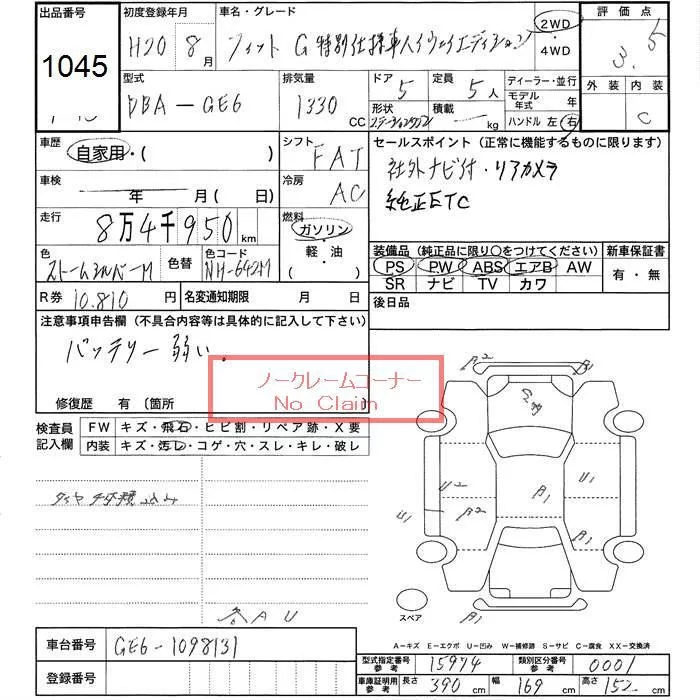 出品番号 初度登録年月 車名・グレード 評価点
1045 H20 8月 フィット G 特別仕様車 ハイウェイエディション 2WD ・ 4WD 3.5
型式 排気量 ドア 定員 ディーラー・並行 外装 内装
DBA-GE6 1330 CC 5 5人 モデル年式 年 C
形状 ステーションワゴン 積載 kg ハンドル 左 右
車歴 シフト セールスポイント(正常に機能するものに限ります)
自家用・( ) FAT 社外ナビ付・リアカメラ
車検 冷房 純正ETC
年 月(日) AC
走行 燃料
8万4千950km ガソリン
軽・油
( )
色 色替 色コード 装備品(純正品に限り○をつけてください) 新車保証書
ストームシルバーM NH-642M PS PW ABS エアB AW 有・無
SR ナビ TV カワ
R券 10,810円 名変通知期限 月 日 後日品
注意事項申告欄(不具合内容等は具体的に記入して下さい)
バッテリー弱い。
ノークレームコーナー
No Claim
修復歴 有 〔箇所
検査員記入欄 FW キズ・飛石・ヒビ割・リペア跡・X要
内装 キズ・汚レ・コゲ・穴・スレ・キレ・破レ
A2
U2 A1 U1
U1 A2 A1
A1
スペア
A1
AU
A-キズ E-エクボ U-凹み W-補修跡 S-サビ C-腐食 XX-交換済
車台番号 GE6-1098131
登録番号
型式指定番号 参考 15974 類別区分番号 参考 0001
車庫証明用 参考 長さ 390 cm 幅 169 cm 高さ 152 cm